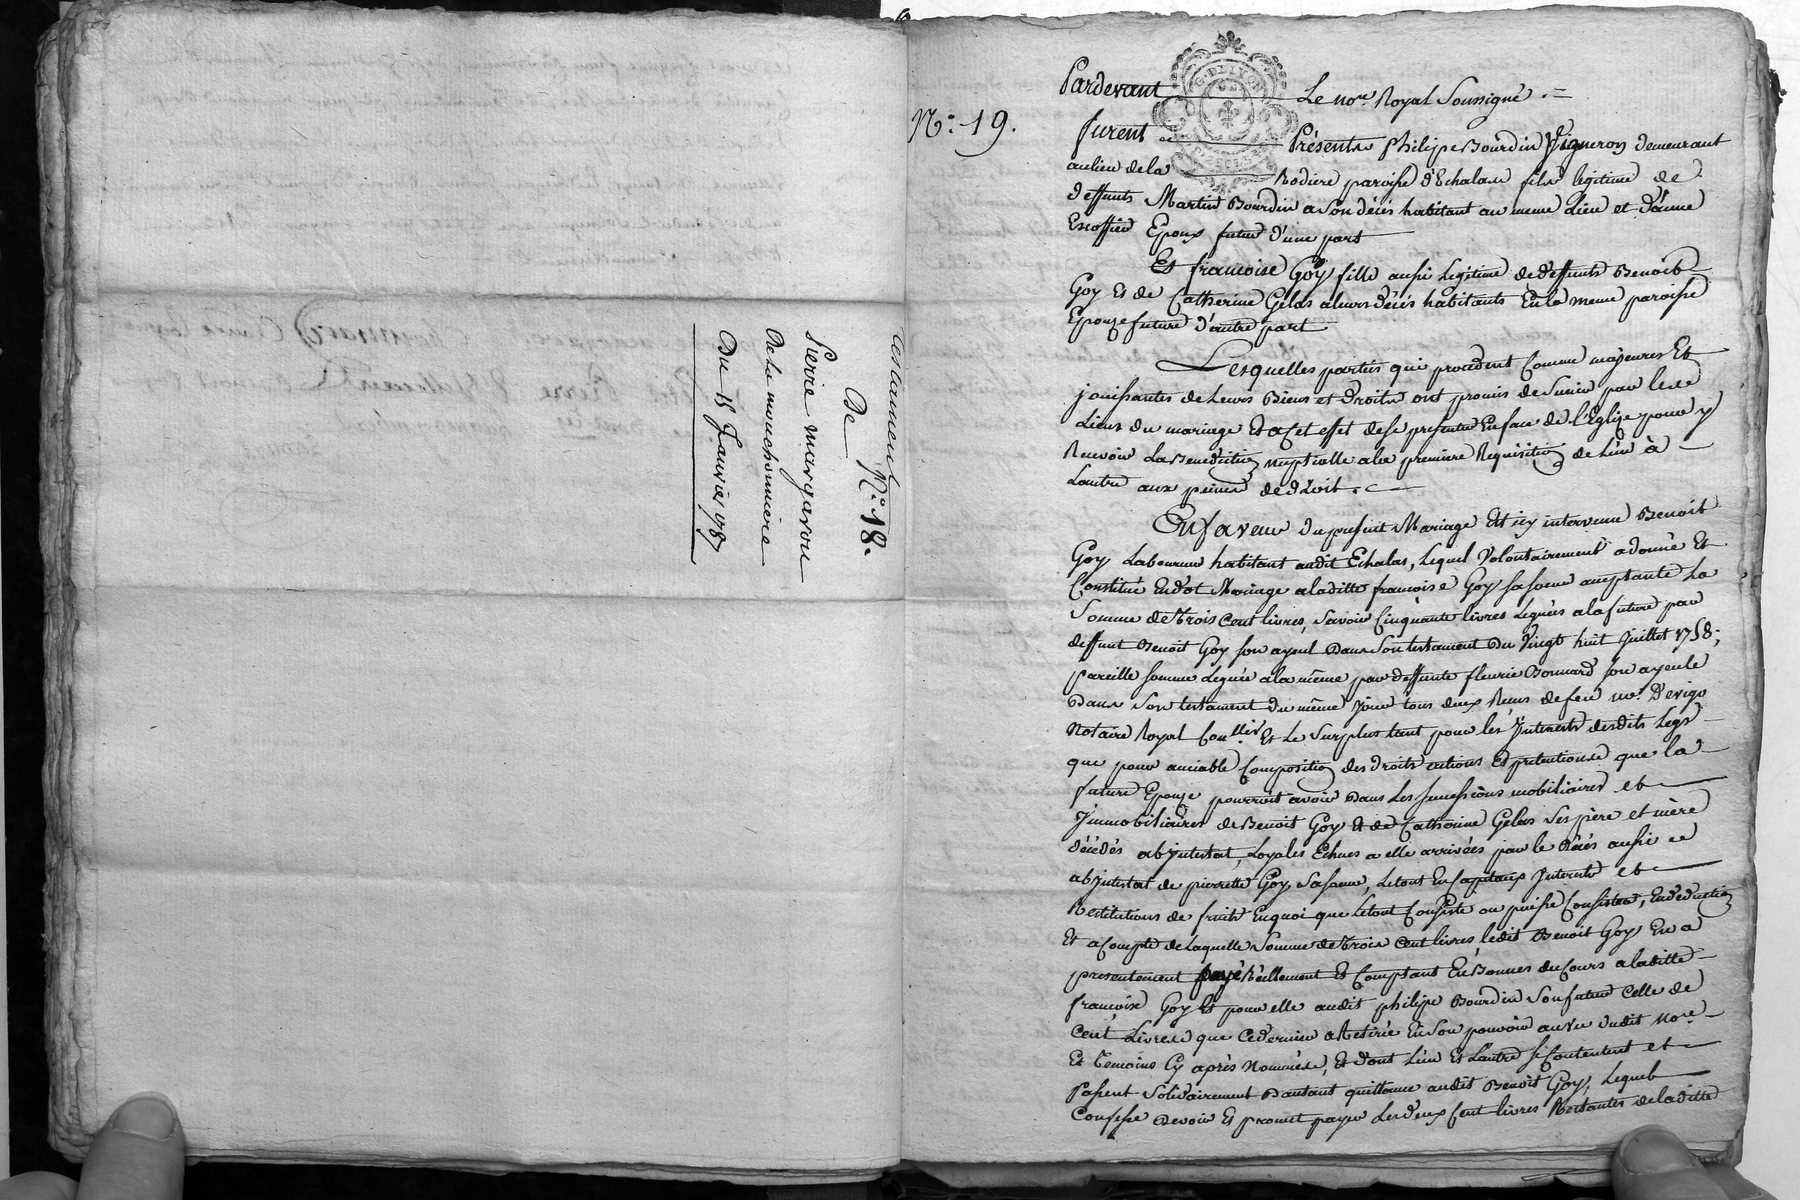 Testament N.° 18.
De
Pierre margaron
De la mouchonniere
Du 15 Janvier 1787
N.° 19.
G. DE LYON
Pardevant Le no.re Royal Soussigné .=
furent Présents Philipe Bourdin Vigneron demeurant
au lieu de la Rodiere paroisse d'Echalas fils legitime de
deffunts Martin Bourdin a son décés habitant au meme Lieu et d'anne
Escoffier Epoux futur d'une part
Et francoise Goy fille aussi Legitime de deffunts Benoit
Goy Et de Catherine Gelas a leurs décés habitants En la meme paroisse
Epouze future d'autre part
Lesquelles parties qui procedent Comme majeures Et
jouissantes de Leurs Biens et Droits ont promis de S'unir par les
Liens du mariage Et a Cet effet de se presenter En face de l'Eglise pour y
Recevoir La Benediction nuptialle a la premiere Requisition de L'un à
L'autre aux peines de droit .
En faveur du present Mariage Est icy intervenu Benoit
Goy Laboureur habitant audit Echalas, Lequel Volontairement a donné Et
Constitué En dot Mariage a laditte francoise Goy sa soeur acceptante La
Somme de Trois Cent livres, Savoir Cinquante livres Léguées a la future par
deffunt Benoit Goy son ayeul Dans Son testament Du Vingt huit Juillet 1758;
pareille somme Léguée a la même par deffunte fleurie Bonnard son ayeule
Dans Son testament du même jour tous deux Reçus de feu m.e Devigo
Notaire Royal Et Le Surplus tant pour les Jnterets desdits Legs
que pour amiable Composition des droits actions Et pretentions que la
future Epouze pourroit avoir Dans Les successions mobiliaires et
Jmmobiliaires de Benoit Goy Et de Catherine Gelas Ses père et mère
décédés abjntestat, Loyales Echues a elle arrivées par le Décés aussi
abjntestat de pierrette Goy Sa soeur, Le tout En Capitaux Jnterets et
Restitutions de fruits En quoi que Le tout Consiste ou puisse Consister, En deduction
Et a Compte de Laquelle Somme de Trois Cent livres ledit Benoit Goy En a
presentement payé Réellement Et Comptant En Bonnes du Cours a laditte
francoise Goy Et pour elle audit philipe Bourdin Son futur Celle de
Cent Livres que Ce dernier a Retirée En Son pouvoir au vu dudit no.re
Et Temoins Cy aprés Nommés, Et dont L'un Et L'autre se Contentent et
Passent Solidairement D'autant quittance audit Benoit Goy, Lequel
Confesse Devoir Et promet payer Les deux Cent livres Restantes de laditte